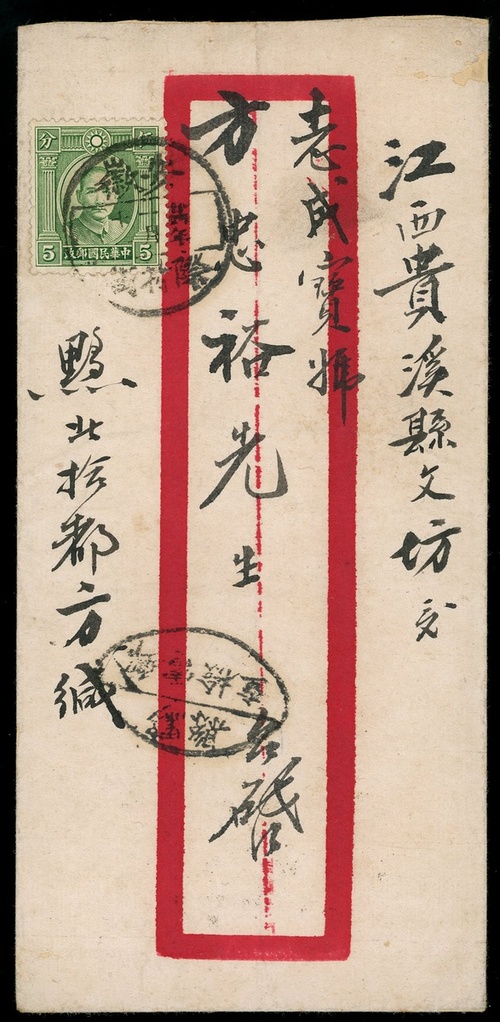 江西貴溪縣文坊交
志成寶號
方忠裕先生台啟
黟北拾都方緘
分 伍
5 中華民國郵政 5
安徽